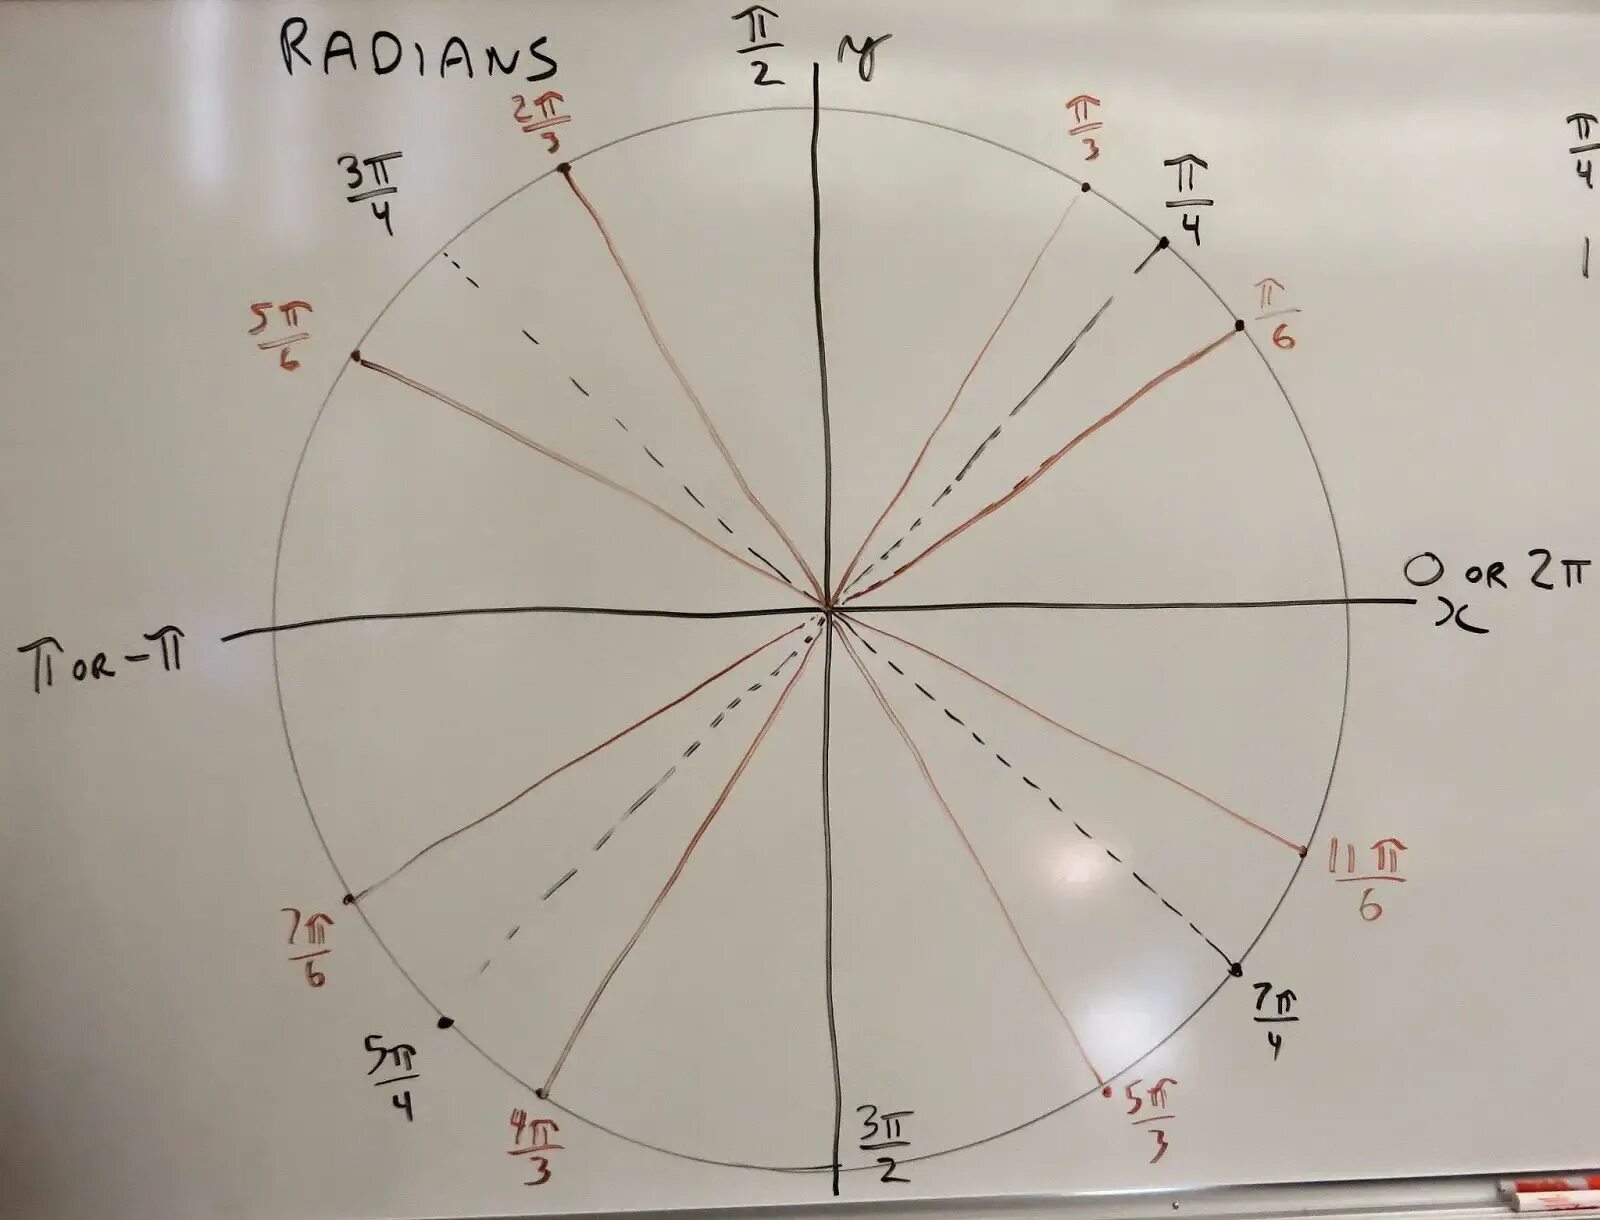 RADIANS
π/2
y
2π/3
π/3
3π/4
π/4
π/4
1
5π/6
π/6
0 OR 2π
x
π OR -π
11π/6
7π/6
7π/4
5π/4
4π/3
3π/2
5π/3